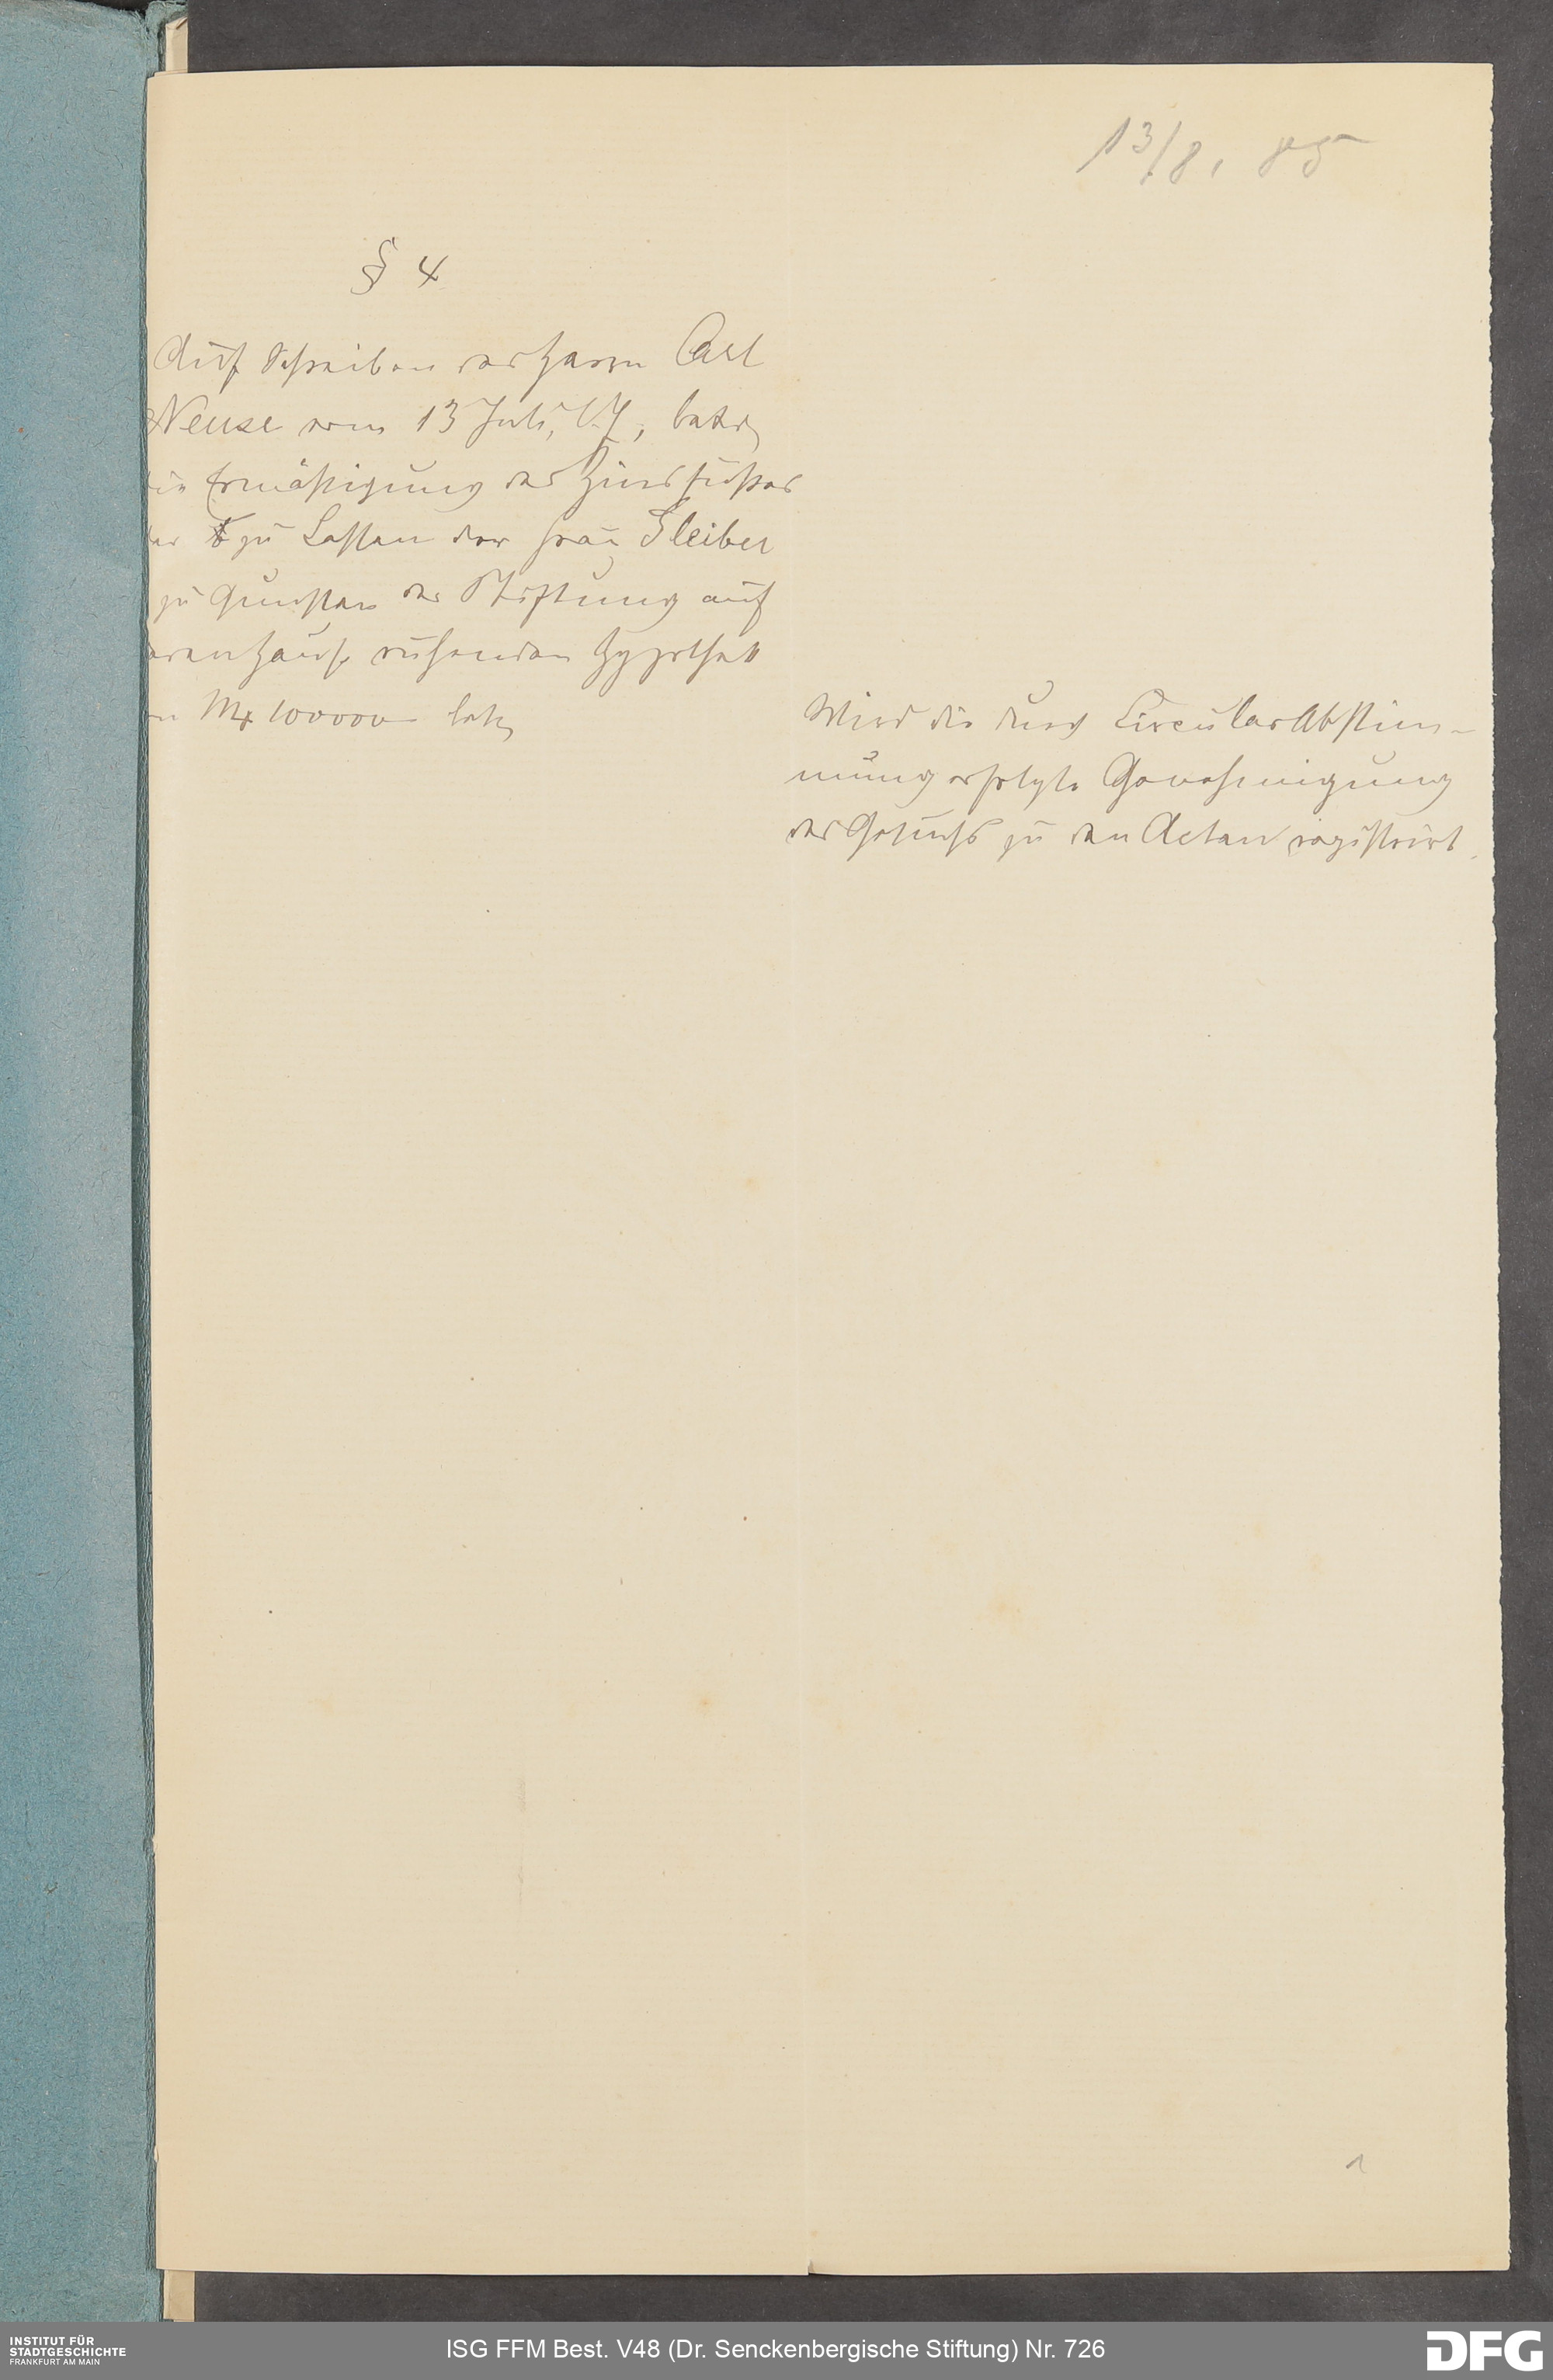 13/8, 95
§ 4
Auf Schreiben des Herrn Carl
Neuse vom 13 Juli, l. J., betr
die Ermäßigung des Zinsfußes
der zu Lasten der Frau Gleiber
zu Gunsten der Stiftung auf
deren Hause ruhenden Hypothek
von Mk 100000 betr
Wird die durch Circular Abstim-
mung erfolgte Genehmigung
des Gesuchs zu den Acten registrirt.
1
INSTITUT FÜR
STADTGESCHICHTE
FRANKFURT AM MAIN
ISG FFM Best. V48 (Dr. Senckenbergische Stiftung) Nr. 726
DFG